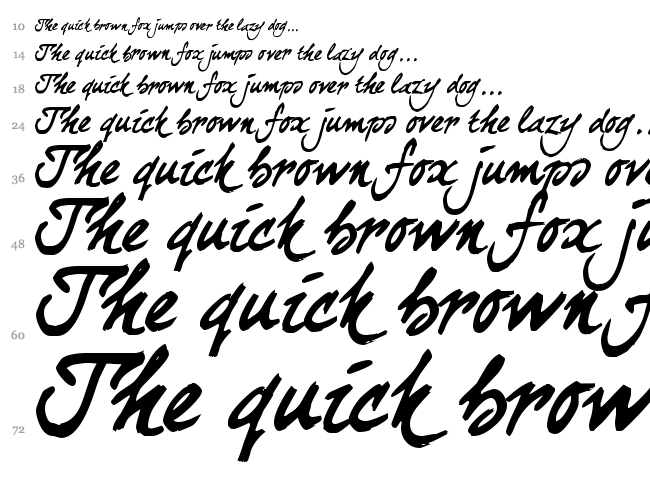 10 The quick brown fox jumps over the lazy dog...
14 The quick brown fox jumps over the lazy dog...
18 The quick brown fox jumps over the lazy dog...
24 The quick brown fox jumps over the lazy dog..
36 The quick brown fox jumps ov
48 The quick brown fox ju
60 The quick brown f
72 The quick brow